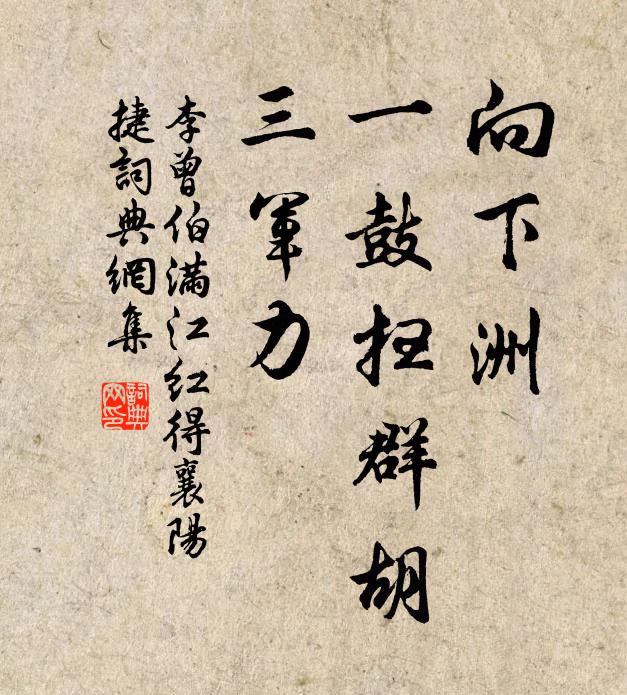 向下洲
一鼓扫群胡
三军力
李曾伯满江红得襄陽
捷詞典網集
詞典
网印